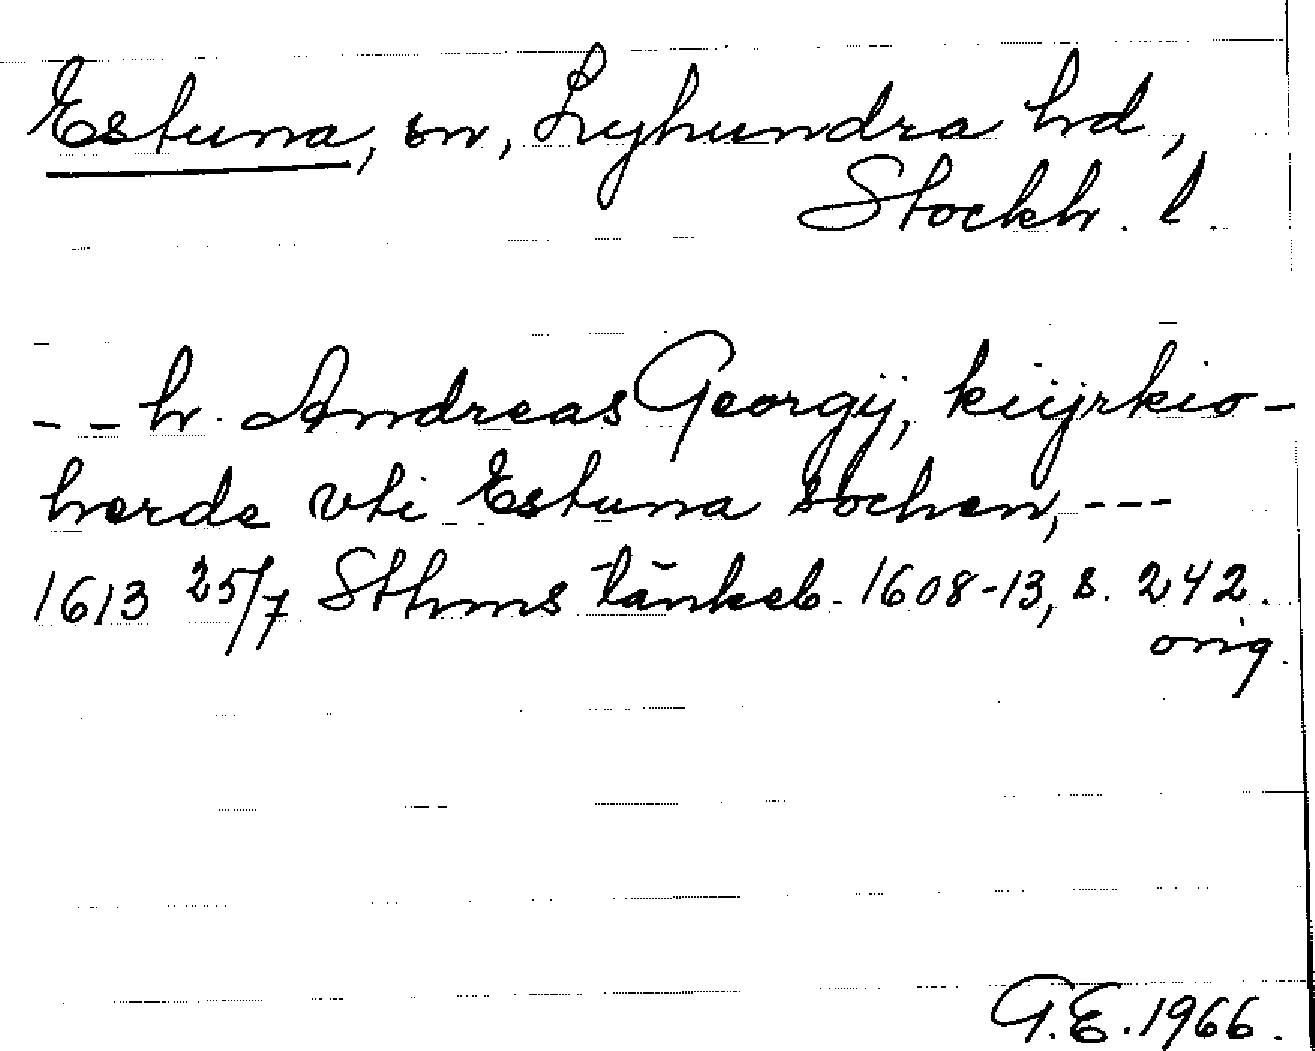 Estuna, sn, Lyhundra hd,
Stockh. l.
-- h. Andreas Georgij, kiijrkio-
herde vti Estuna sochen, ---
1613 25/7 Sthms tänkeb. 1608-13, s. 242.
orig.
G.E. 1966.